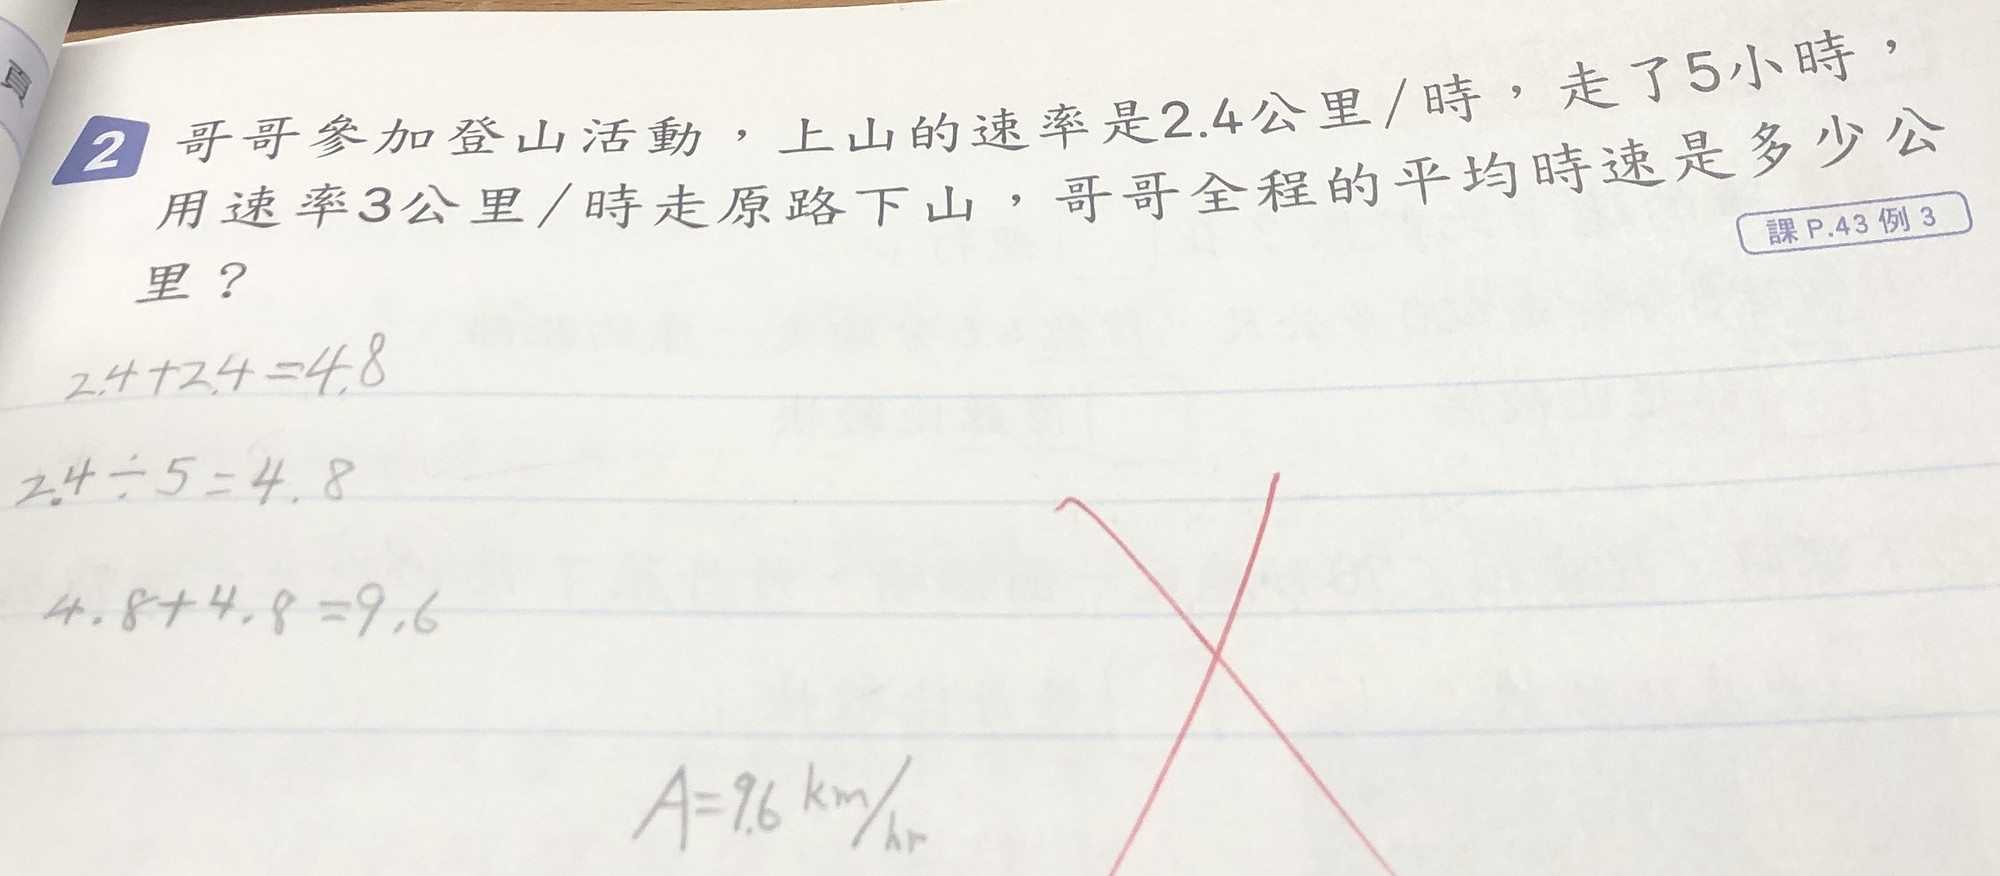 頁
2 哥哥參加登山活動，上山的速率是2.4公里/時，走了5小時，
用速率3公里/時走原路下山，哥哥全程的平均時速是多少公
里？
課 P.43 例 3
2.4+2.4=4.8
2.4÷5=4.8
4.8+4.8=9.6
A=9.6 km/hr